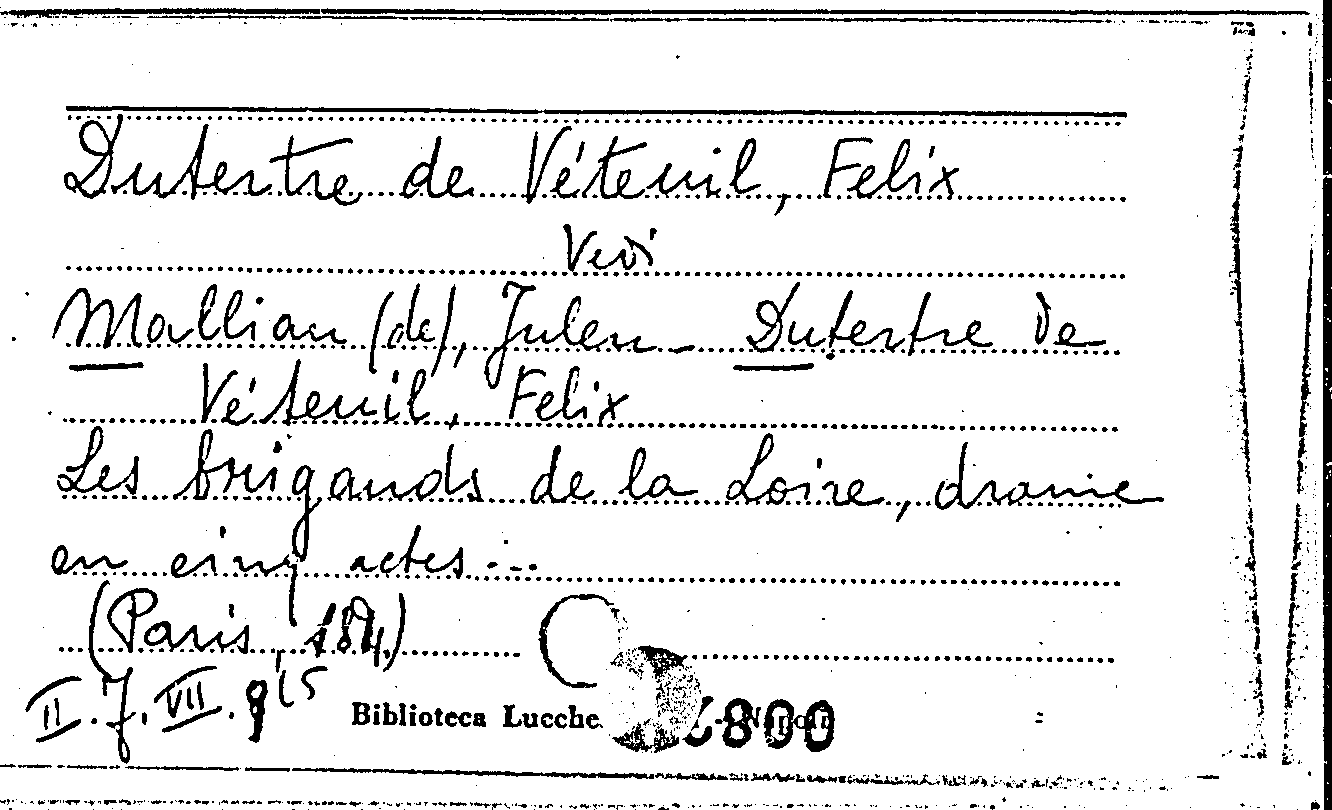 Dutertre de Véteuil, Felix
Vedi
Mallian (de), Julen - Dutertre de
Véteuil, Felix
Les brigands de la Loire, drame
en cinq actes...
(Paris, 184.)
II. J. VII. 9 15
Biblioteca Lucche 800